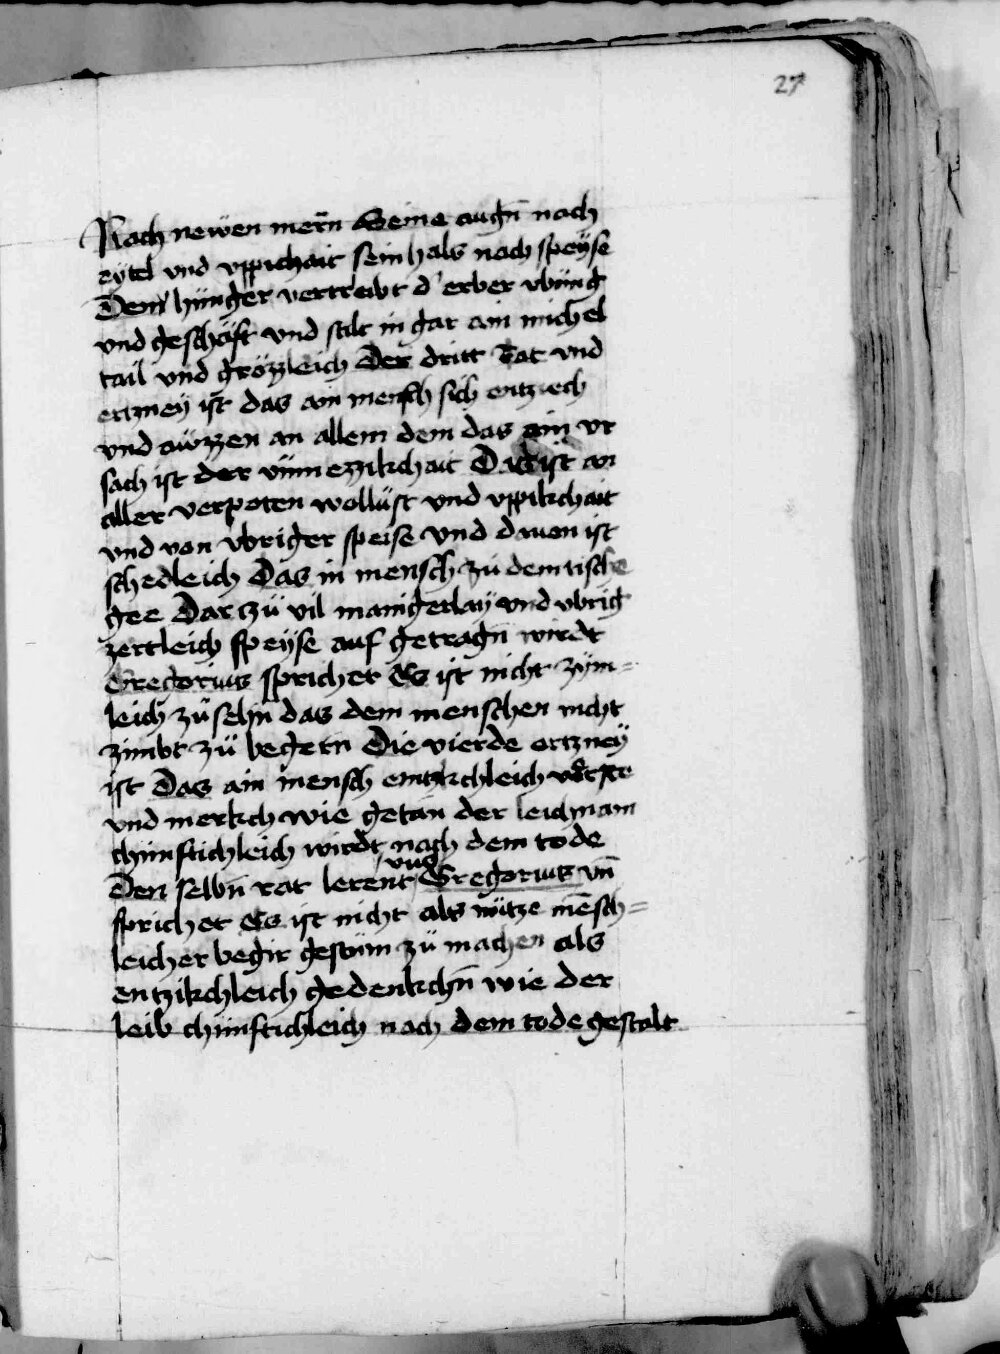 27
Nach newen mern̄ Seine augn̄ nach
eytel vnd vppichait sein hals nach speyse
Den hünger vertreibt d' erber vbüng
vnd geschäft vnd stilt in gar ain michel
tail vnd grözzleich Der dritt Rat vnd
ertzney ist das ain mensch sich entziech
vnd aüzzen an allem dem das ain vr
sach ist der vnmezzikchait Das ist an
aller verpoten wollüst vnd vppikchait
vnd von vbriger speise vnd dauon ist
schedleich Das in mensch zü dem tische
gee Dar zü vil manigerlay vnd vbrig
zertleich speyse auf getragn̄ wirdt
Gregorius sprichet Es ist nicht zym=
leich zü sehn das dem menschen nicht
zimbt zü begern Die vierde ertzney
ist Das ain mensch emtzikchleich
vnd merkch wie getan der leichnam
chünftichleich wirdt nach dem tode
Den selbn̄ rat lerent vns Gregorius vn̄
sprichet Es ist nicht als nütze mēsch=
leicher begir gestüm zü machen als
entzikchleich gedenkchn̄ wie der
leib chünftichleich nach dem tode gestalt